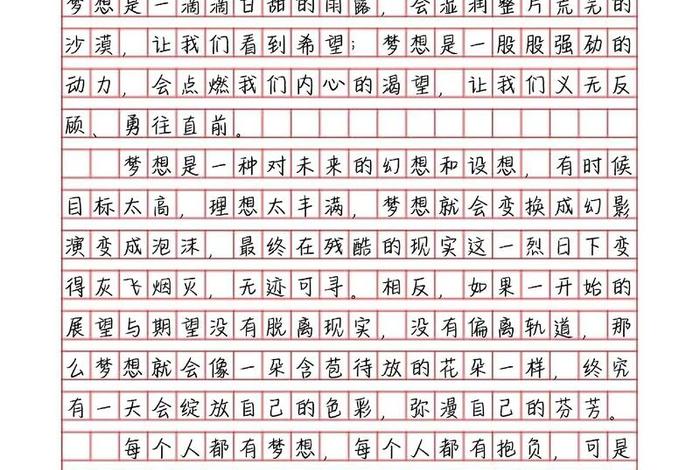 梦想是一滴滴甘甜的雨露，会湿润整片荒芜的
沙漠，让我们看到希望；梦想是一股股强劲的
动力，会点燃我们内心的渴望，让我们义无反
顾、勇往直前。
梦想是一种对未来的幻想和设想，有时候
目标太高，理想太丰满，梦想就会变换成幻影
演变成泡沫，最终在残酷的现实这一烈日下变
得灰飞烟灭，无迹可寻。相反，如果一开始的
展望与期望没有脱离现实，没有偏离轨道，那
么梦想就会像一朵含苞待放的花朵一样，终究
有一天会绽放自己的色彩，弥漫自己的芬芳。
每个人都有梦想，每个人都有抱负，可是